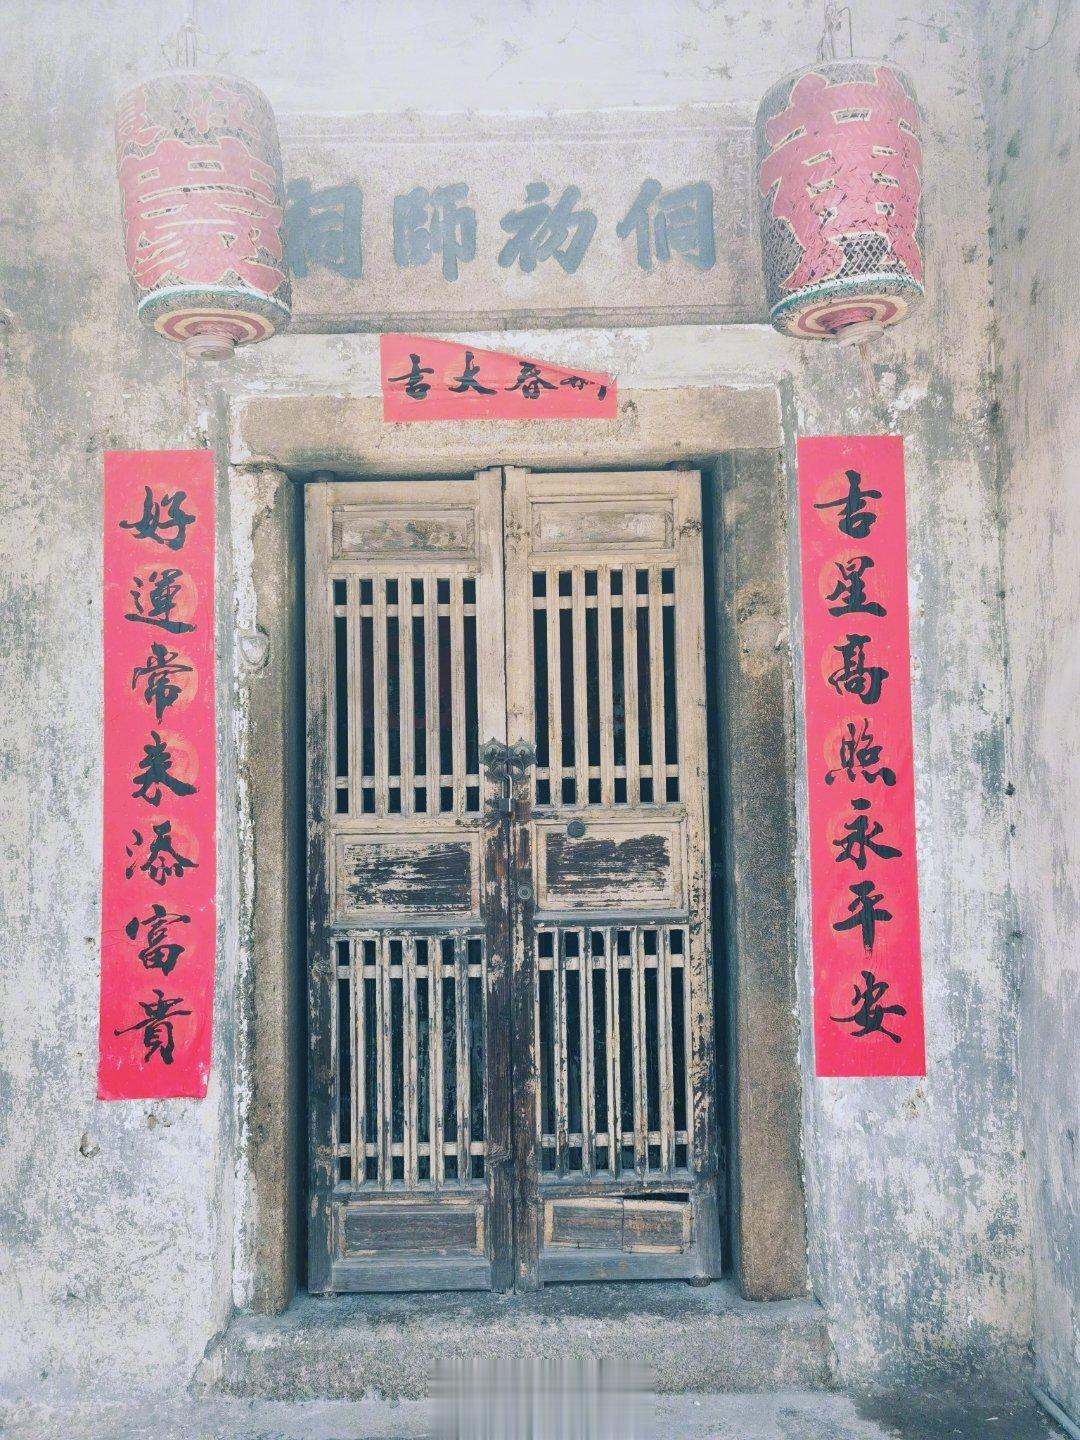 侗初師祠
新春大吉
吉星高照永平安
好運常来添富貴